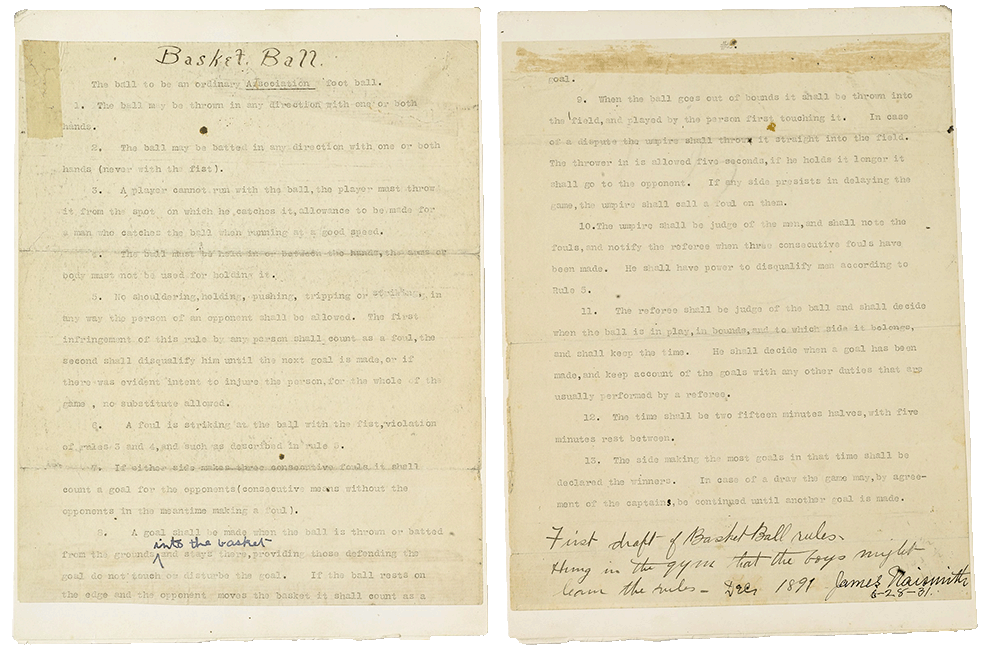 Basket Ball.
The ball to be an ordinary Association foot ball.
1. The ball may be thrown in any direction with one or both
hands.
2. The ball may be batted in any direction with one or both
hands (never with the fist).
3. A player cannot run with the ball, the player must throw
it from the spot on which he catches it, allowance to be made for
a man who catches the ball when running at a good speed.
4. The ball must be held in or between the hands, the arms or
body must not be used for holding it.
5. No shouldering, holding, pushing, tripping or striking, in
any way the person of an opponent shall be allowed. The first
infringement of this rule by any person shall count as a foul, the
second shall disqualify him until the next goal is made, or if
there was evident intent to injure the person, for the whole of the
game, no substitute allowed.
6. A foul is striking at the ball with the fist, violation
of rules 3 and 4, and such as described in rule 5.
7. If either side makes three consecutive fouls, it shall
count a goal for the opponents (consecutive means without the
opponents in the meantime making a foul).
8. A goal shall be made when the ball is thrown or batted
into the basket
from the grounds and stays there, providing those defending the
goal do not touch or disturbe the goal. If the ball rests on
the edge and the opponent moves the basket it shall count as a
goal.
9. When the ball goes out of bounds it shall be thrown into
the field, and played by the person first touching it. In case
of a dispute the umpire shall throw it straight into the field.
The thrower in is allowed five seconds, if he holds it longer it
shall go to the opponent. If any side presists in delaying the
game, the umpire shall call a foul on them.
10. The umpire shall be judge of the men, and shall note the
fouls, and notify the referee when three consecutive fouls have
been made. He shall have power to disqualify men according to
Rule 5.
11. The referee shall be judge of the ball and shall decide
when the ball is in play, in bounds, and to which side it belongs,
and shall keep the time. He shall decide when a goal has been
made, and keep account of the goals with any other duties that are
usually performed by a referee.
12. The time shall be two fifteen minutes halves, with five
minutes rest between.
13. The side making the most goals in that time shall be
declared the winners. In case of a draw the game may, by agree-
ment of the captains, be continued until another goal is made.
First draft of Basket Ball rules.
Hung in the gym that the boys might
learn the rules - Dec. 1891 James Naismith
6-28-31.